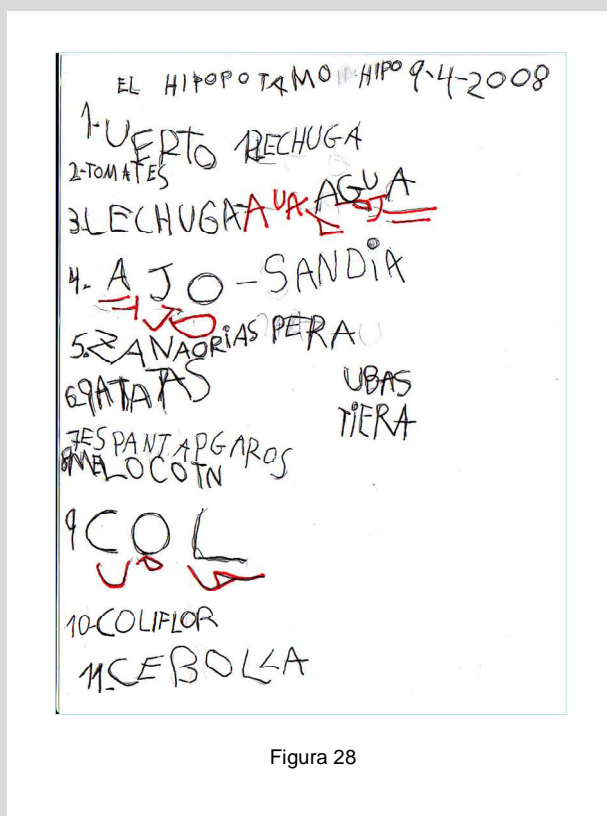 EL HIPOPOTAMO HIPO 9-4-2008
1-UERTO RECHUGA
2-TOMATES
3-LECHUGA AUA AGUA
4. AJO-SANDiA
5.ZANAORiAS PERA
6.9ATATAS UBAS
TiERA
7ESPANTAPGAROS
8MELOCOTN
9COL
10-COLIFLOR
11.CEBOLLA
Figura 28